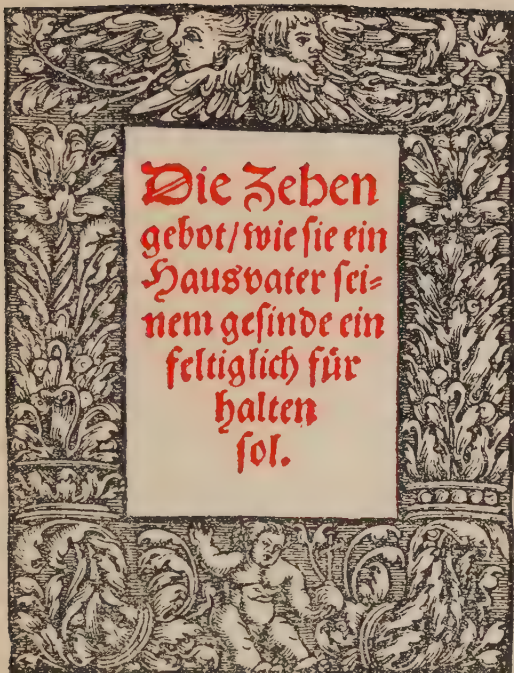 Die Zehen
gebot/ wie sie ein
Hausvater sei⸗
nem gesinde ein
feltiglich fuͤr
halten
sol.